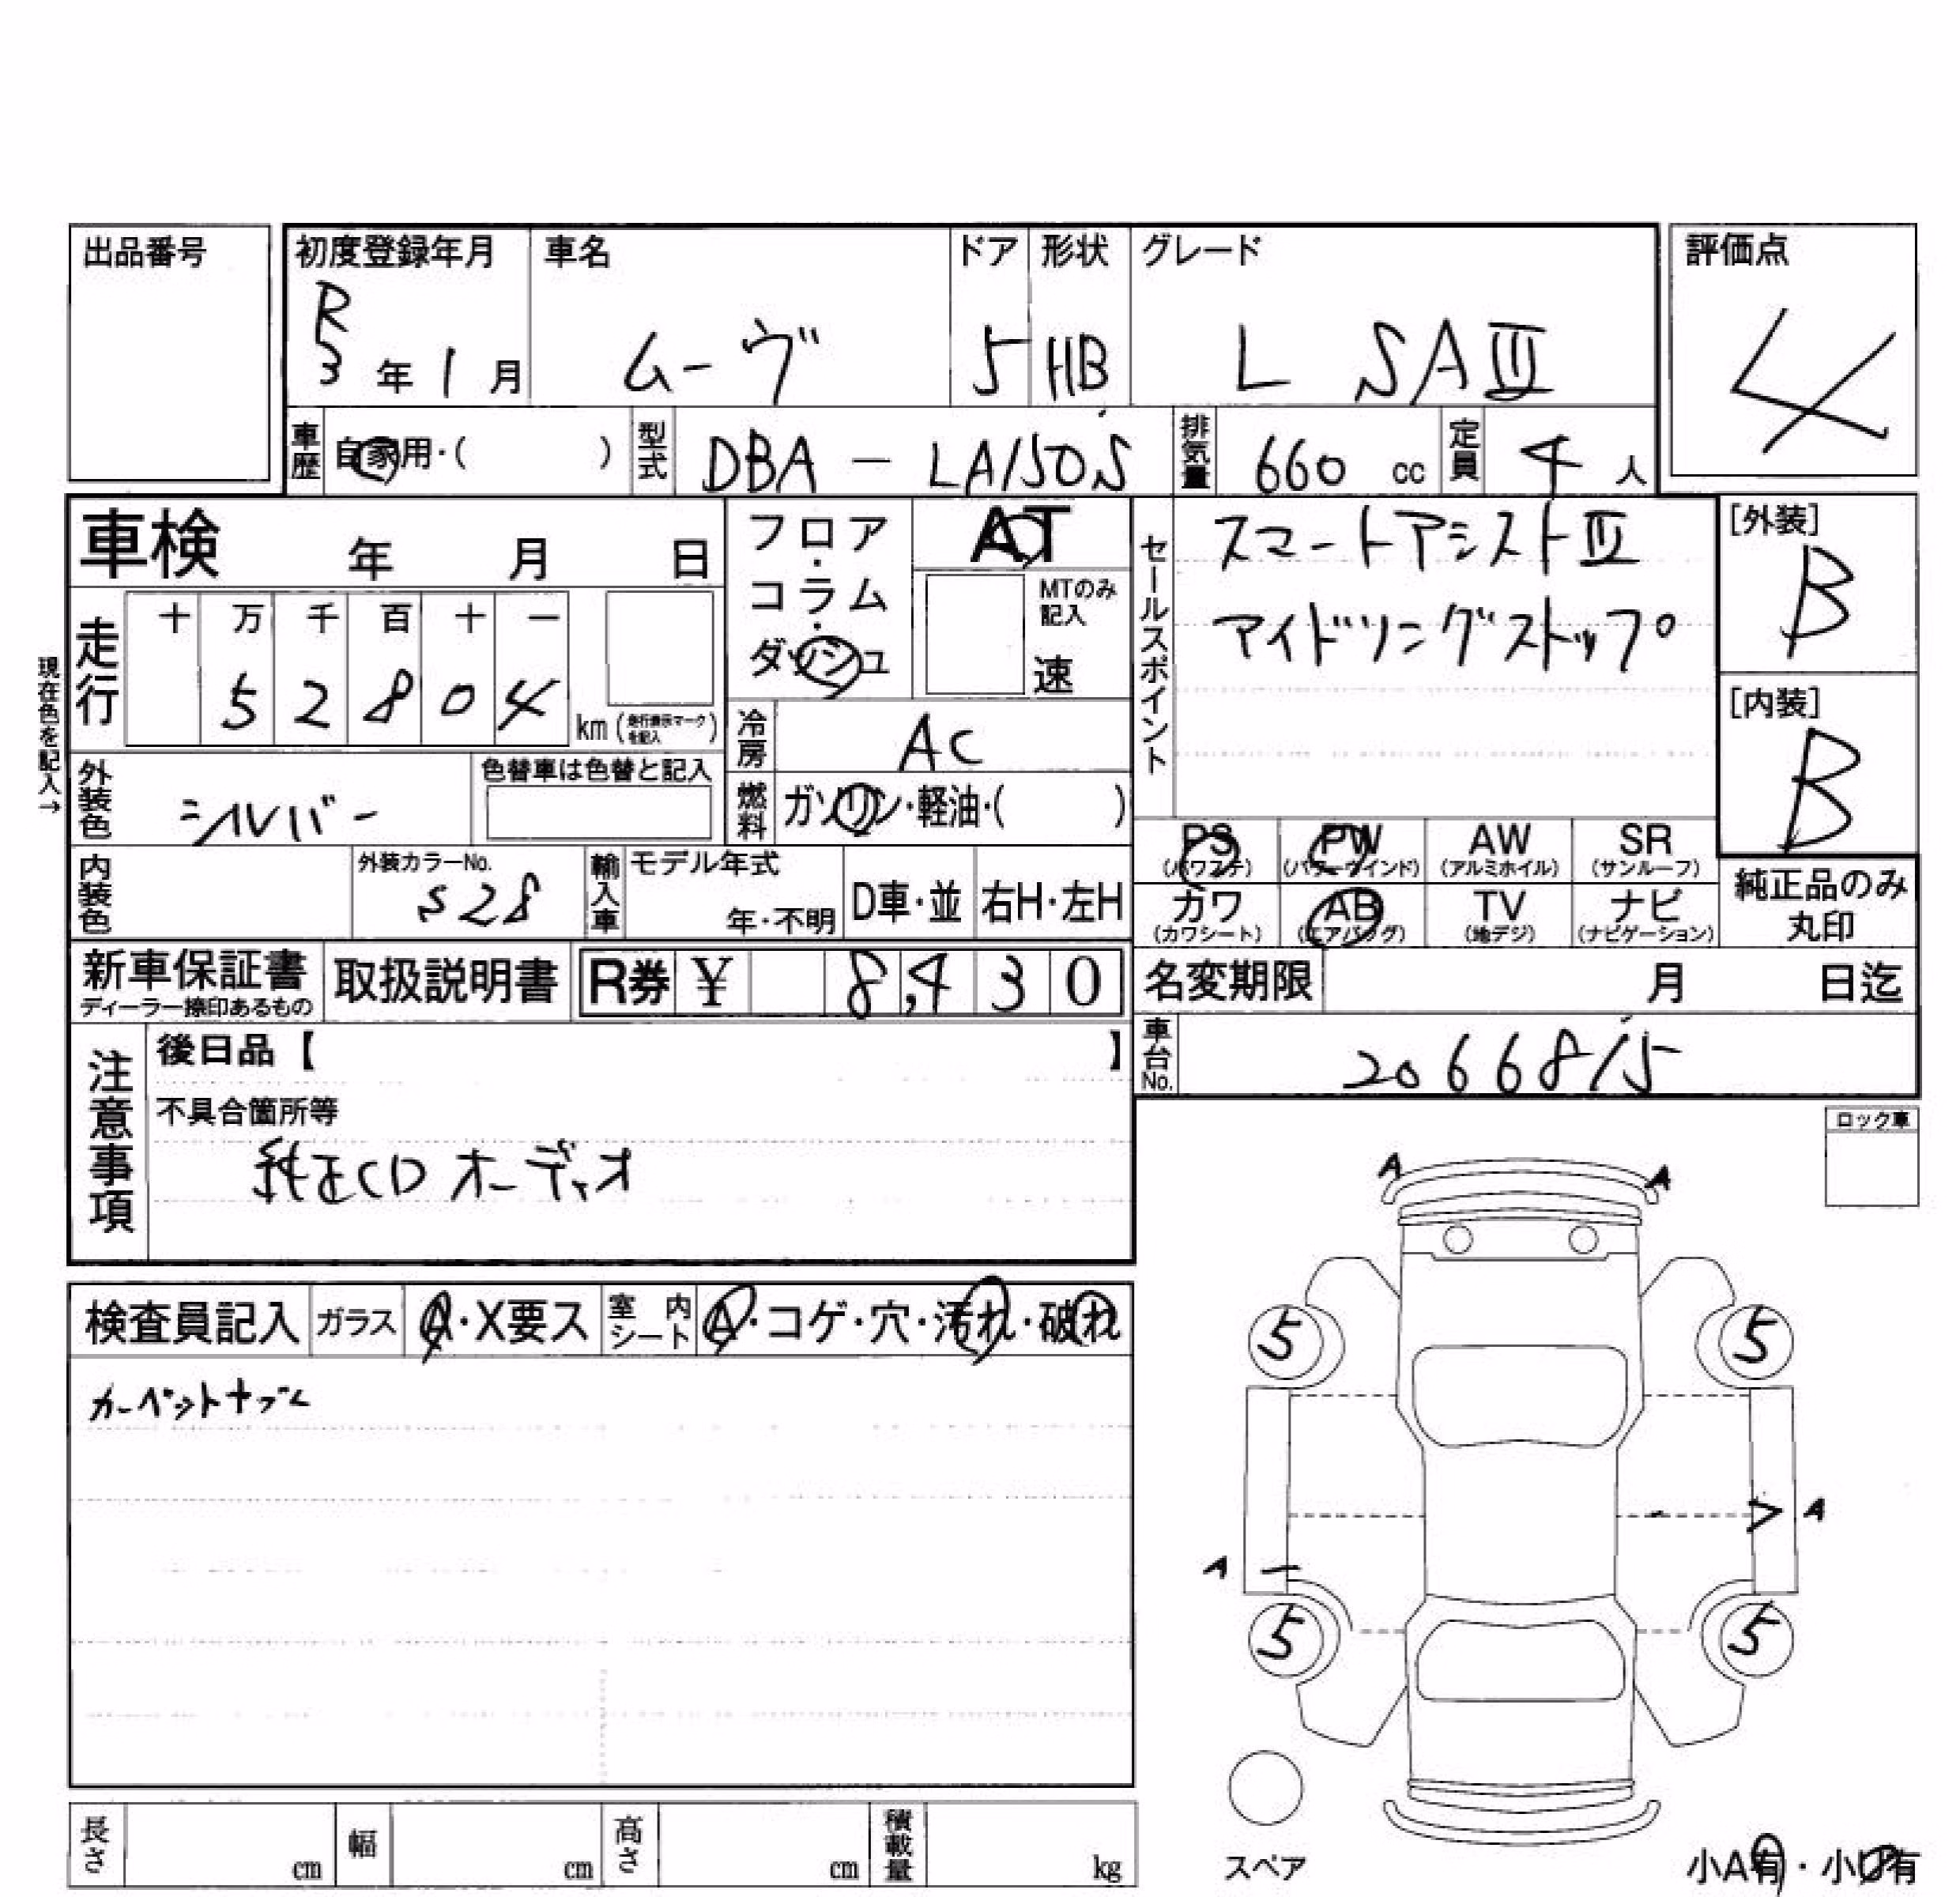 出品番号
初度登録年月 車名 ドア 形状 グレード 評価点
R
3 年 1 月 ムーヴ 5 HB L SAⅢ 4
車歴 自家用・( ) 型式 DBA - LA150S 排気量 660 cc 定員 4 人
車検 年 月 日
フロア・コラム・ダッシュ
AT
MTのみ記入
速
セールスポイント
スマートアシストⅢ
アイドリングストップ
[外装]
B
[内装]
B
現在色を記入→
走行 十 万 千 百 十 一
5 2 8 0 4 km (走行表示マークを記入)
冷房 AC
外装色 シルバー 色替車は色替と記入
燃料 ガソリン・軽油・( )
PS AW SR
(パワステ) (パワーウインド) (アルミホイル) (サンルーフ)
PW
カワ AB TV ナビ
(カワシート) (エアバッグ) (地デジ) (ナビゲーション)
純正品のみ
丸印
内装色 外装カラーNo. S28 輸入車 モデル年式 年・不明 D車・並 右H・左H
新車保証書 取扱説明書 R券 ¥ 8,430
ディーラー捺印あるもの
名変期限 月 日迄
車台No. 2066815
注意事項
後日品【 】
不具合箇所等
純正CDオーディオ
ロック車
検査員記入 ガラス A・X要ス 室内シート A・コゲ・穴・汚れ・破れ
A A
5 5
A
A
5 5
スペア
小A有・小U有
長さ cm 幅 cm 高さ cm 積載量 kg